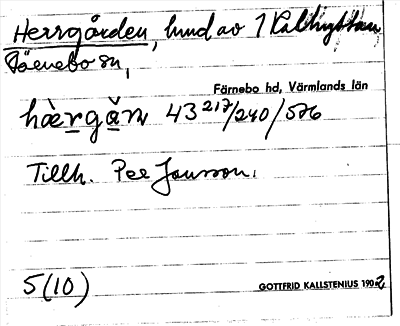 Herrgården, hmd av 1 Kalhyttan
Färnebo sn,
Färnebo hd, Värmlands län
hær̲gǎ̲n 43 217/240/576
Tillh. Per Jonsson.
5(10)
GOTTFRID KALLSTENIUS 1902